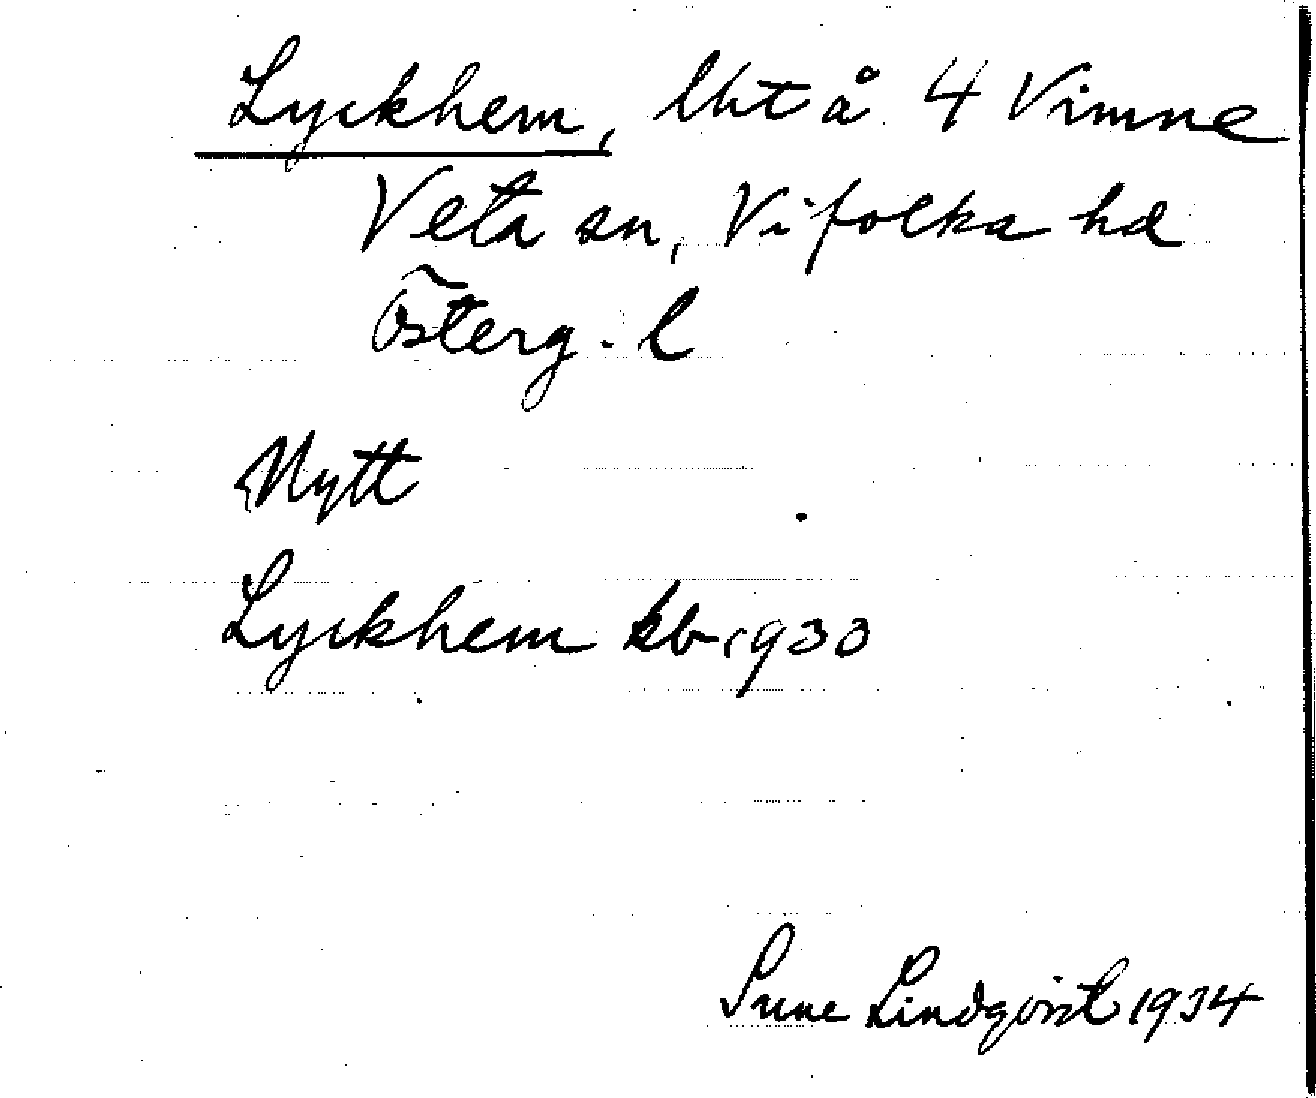 Lyckhem, lht å 4 Vimne
Veta sn, Vifolka hd
Österg. l
Nytt
Lyckhem kb 1933
Sune Lindqvist 1934